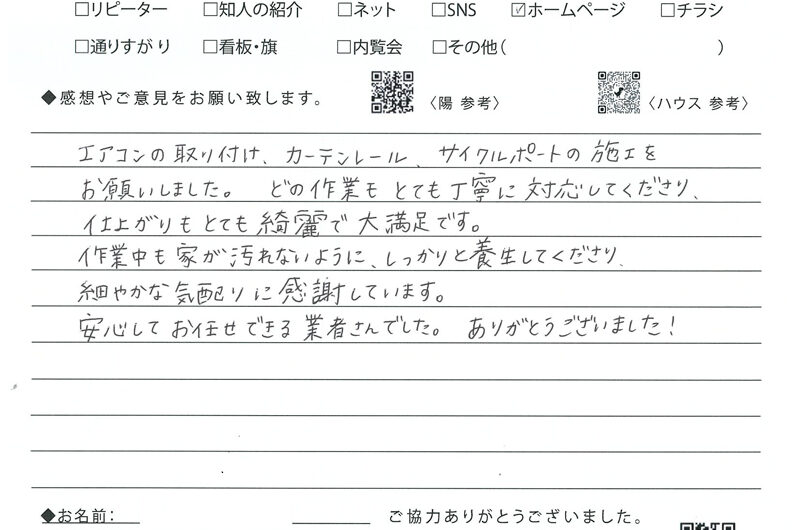 □リピーター □知人の紹介 □ネット □SNS ☑ホームページ □チラシ
□通りすがり □看板・旗 □内覧会 □その他( )
◆感想やご意見をお願い致します。 〈陽 参考〉 〈ハウス 参考〉
エアコンの取り付け、カーテンレール、サイクルポートの施工を
お願いしました。 どの作業もとても丁寧に対応してくださり、
仕上がりもとても綺麗で大満足です。
作業中も家が汚れないように、しっかりと養生してくださり、
細やかな気配りに感謝しています。
安心してお任せできる業者さんでした。 ありがとうございました!
◆お名前: ご協力ありがとうございました。